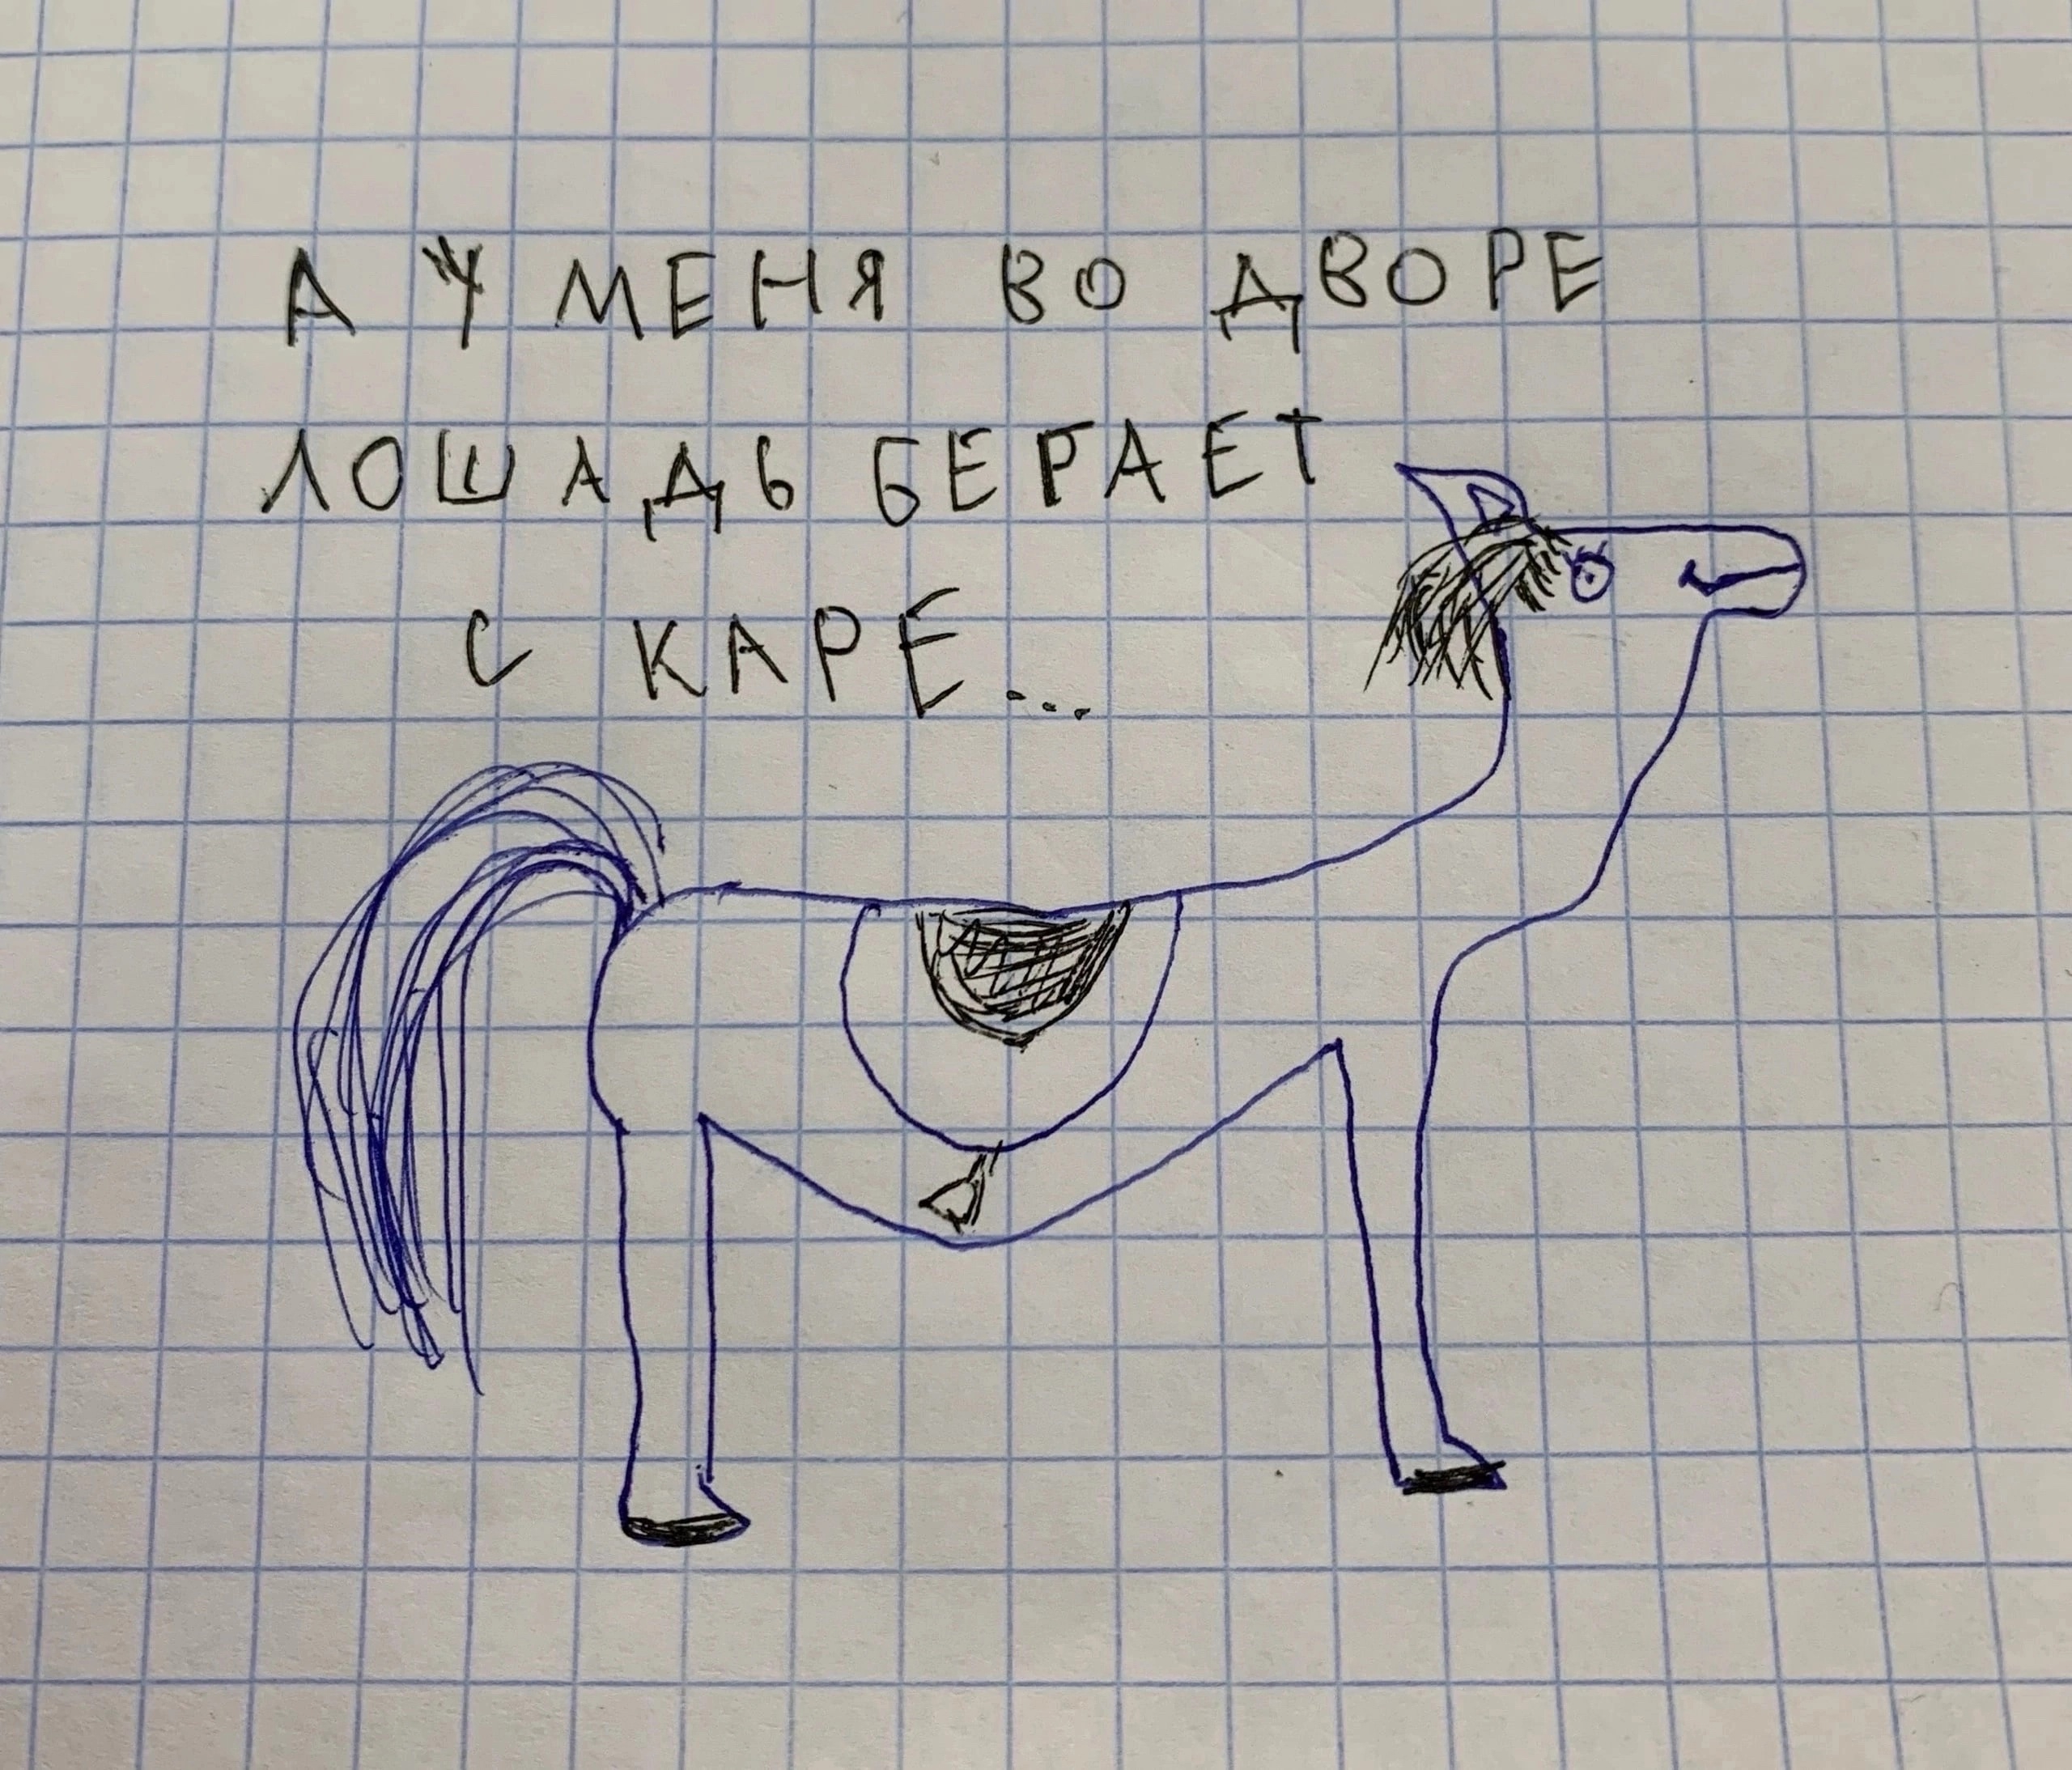 А У МЕНЯ ВО ДВОРЕ
ЛОШАДЬ БЕГАЕТ
С КАРЕ...